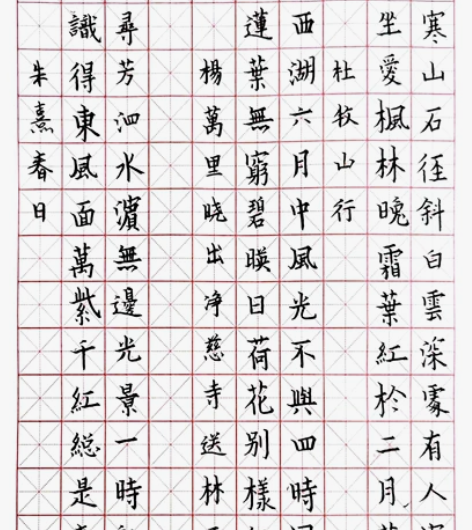 寒山石徑斜白雲深處有人
坐愛楓林晚霜葉紅於二月
杜牧山行
西湖六月中風光不與四時
蓮葉無窮碧映日荷花別樣
楊萬里曉出净慈寺送林
尋芳泗水濵無邊光景一時
識得東風面萬紫千紅総是
朱熹春日